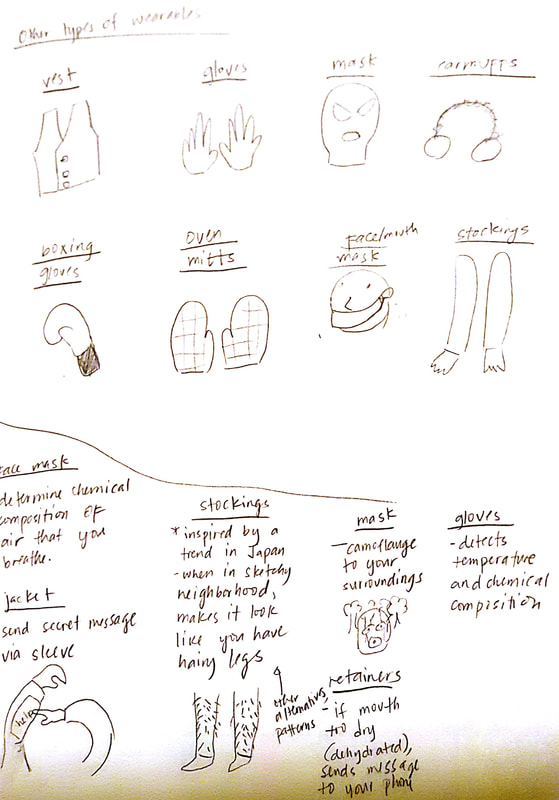 Other types of wearables
vest
gloves
mask
earmuffs
boxing
gloves
oven
mitts
Face/mouth
mask
stockings
face mask
determine chemical
composition of
air that you
breathe.
jacket
send secret message
via sleeve
help
stockings
*inspired by a
trend in Japan
-when in sketchy
neighborhood,
makes it look
like you have
hairy legs
other
alternatives,
patterns
mask
-camoflauge
to your
surroundings
retainers
- if mouth
too dry
(dehydrated),
sends message
to your phone
gloves
-detects
temperature
and chemical
composition